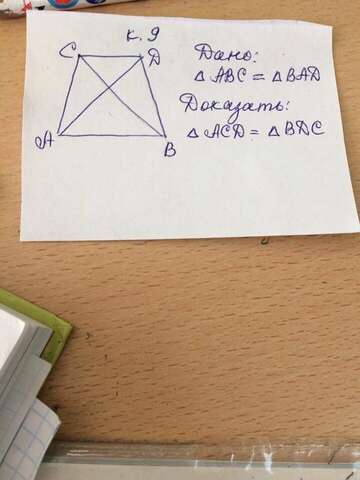 К. 9
C D
A B
Дано:
△ ABC = △ BAD
Доказать:
△ ACD = △ BDC